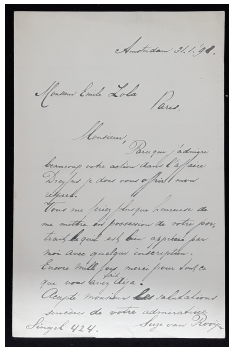 Amsterdam 31.1.98.
Monsieur Emile Zola
Paris.
Monsieur,
Parceque j'admire
beaucoup votre action dans l'affaire
Dreyfus je dois vous offrir mon
Vous me ferez plus heureuse de
me mettre en possession de votre por
trait lequel est bien apprécié par
moi avec quelque inscription.
Encore mille fois merci pour tout ce
que vous avez
Accepte monsieur les salutations
sincères de votre admiratrice
Singel 424. Suze van Rooij